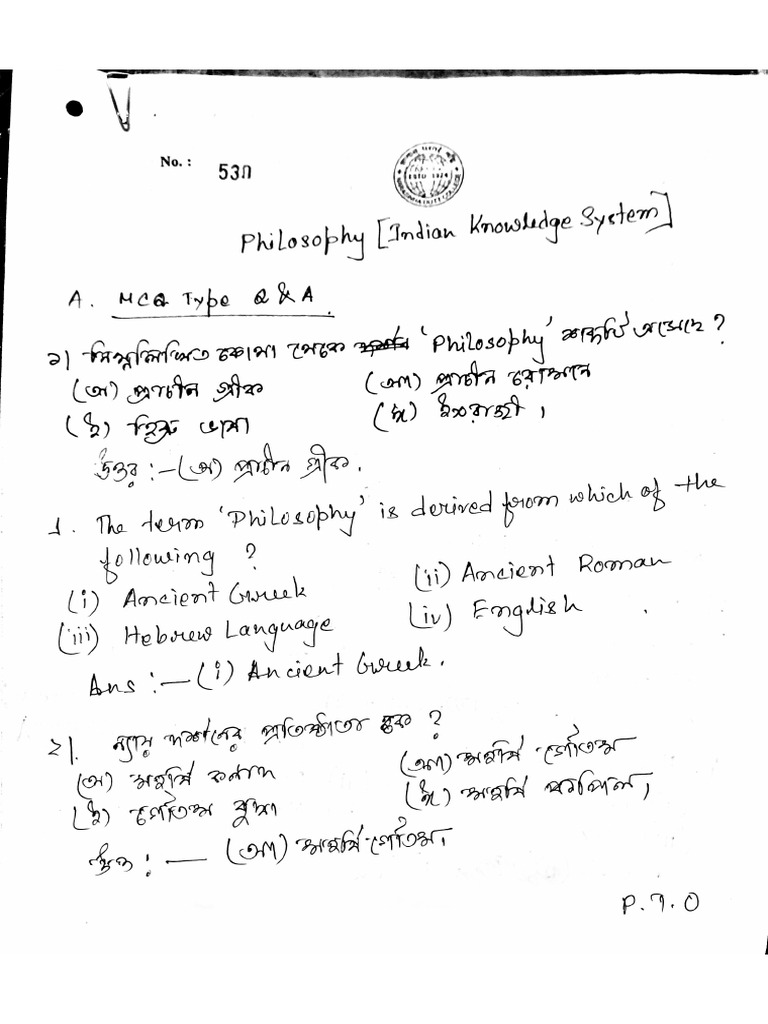 No. : 530
ESTD 1924
Philosophy [Indian Knowledge System]
A. MCQ Type Q & A.
১) নিম্নলিখিত কোথা থেকে 'Philosophy' শব্দটি এসেছে?
(অ) প্রাচীন গ্রীক (আ) প্রাচীন রোমান
(ই) হিব্রু ভাষা (ঈ) ইংরাজী।
উত্তর :– (অ) প্রাচীন গ্রীক.
1. The term 'Philosophy' is derived from which of the
following ?
(i) Ancient Greek (ii) Ancient Roman
(iii) Hebrew Language (iv) English .
Ans :— (i) Ancient Greek.
২) ন্যায় দর্শনের প্রতিষ্ঠাতা কে ?
(অ) মহর্ষি কণাদ (আ) মহর্ষি গৌতম
(ই) গৌতম বুদ্ধ (ঈ) মহর্ষি কপিল।
উঃ :— (আ) মহর্ষি গৌতম।
P.T.O